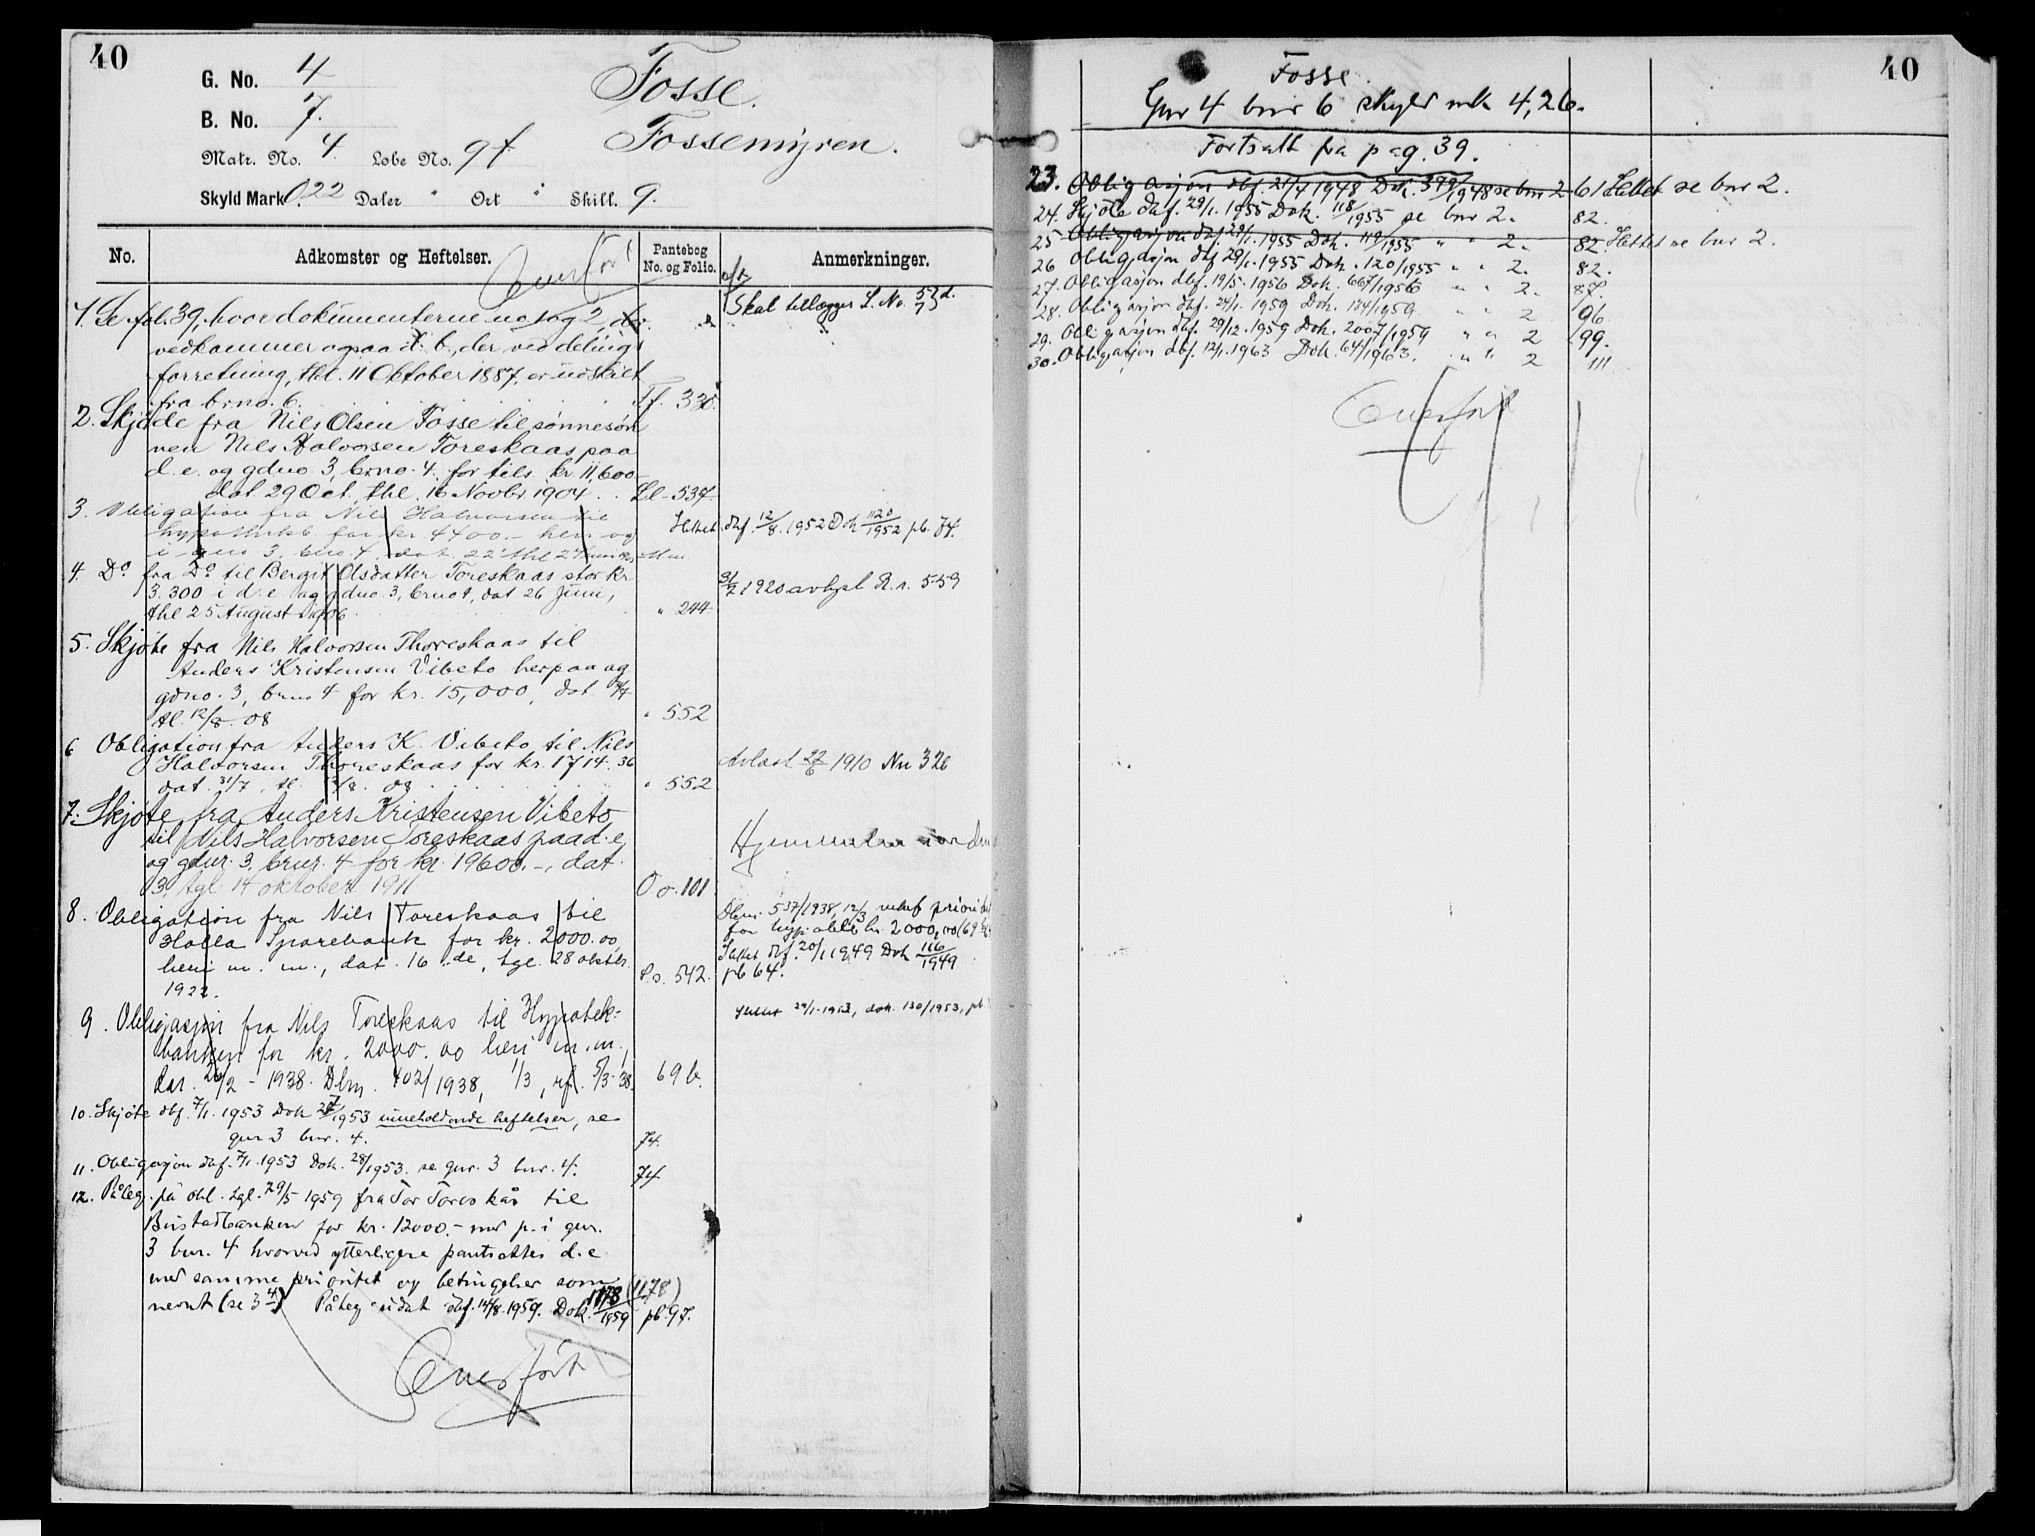 40
G. No. 4
Fosse.
B. No. 7.
Fossemyren.
Matr. No. 4 Løbe No. 9 f
Skyld Mark 0.22 Daler " Ort " Skill. 9.
No. Adkomster og Heftelser. Pantebog No. og Folio. Anmerkninger.
Overført
1. Se fol. 39, hvor dokumenterne no 1 og 2,
vedkommer ogsaa d. b., der ved delings
forretning, thl. 11 Oktober 1887, er udskilt
fra brno. 6. Tf. 330.
Skal tillægges L. No.
2. Skjøde fra Nils Olsen Fosse til sønnesøn
nen Nils Halvorsen Toreskaas paa
d. e. og gdno. 3, brno. 4. for tils. kr. 11,600
dat 29 Oct, thl. 16 Novbr 1904. Ll. 537
3. Obligation fra Nils Halvorsen til
hypothekb. for kr 4400.- heri og
i gno 3, bno. 4, dat. 22 thl 27
Slettet dbf. 12/8. 1952 Dok 1120/1952 pb. 74.
4. Do. fra Do. til Bergit Olsdatter Toreskaas stor kr
3.300 i d. e. og gdno. 3, brno 4, dat 26 Juni,
thl 25 August 1906 " 244
1920 avlyst R. n. 559
5. Skjøte fra Nils Halvorsen Thoreskaas til
Anders Kristensen Vibeto herpaa og
gdno. 3, brno 4 for kr. 15,000, dat 31/7
tl. 12/8. 08 " 552
6 Obligation fra Anders K. Vibeto til Nils
Halvorsen Thoreskaas for kr. 1714.36
dat. 31/7, tl. 12/8. 08 " 552
Avlæst 22/6 1910 Nr 328
7. Skjøte fra Anders Kristensen Vibeto
til Nils Halvorsen Toreskaas paa d. e.
og gdnr. 3, brnr. 4 for kr. 19600.-, dat.
3, tgl 14 oktober 1911 Oo. 101
8. Obligation fra Nils Toreskaas til
Holla Sparebank for kr. 2000.00
heri m. m., dat. 16 de, tgl. 28 oktbr.
1922. Ss. 542.
Dbnr. 537/1938, 12/3 prioritet
for hyp. obl. kr. 2000,00 (69
Slettet dbf. 20/1 1949 Dok 116/1949
pb 64.
9. Obligasjon fra Nils Toreskaas til Hypotek-
banken for kr. 2000.00 heri m. m.,
dat. 26/2 - 1938. Dbn. 402/1938, 1/3, rf. 5/3-38. 69 b.
Slettet 29/1-1953, dok. 130/1953, pb.
10. Skjøte dbf. 7/1. 1953 Dok 27/1953 inneholdende heftelser, se
gnr 3 bnr. 4. 74.
11. Obligasjon dbf. 7/1. 1953 Dok. 28/1953. se gnr. 3 bnr. 4. 74
12. Påteg. på obl. tgl. 29/5 1959 fra Tor Toreskås til
Bustadbanken for kr. 12000.- med p. i gnr.
3 bnr. 4 hvorved ytterligere pantsettes d. e
med samme prioritet og betingelser som
nevnt (se 3/4) Påteg. udat dbf. 14/8. 1959. Dok. 1178/1959 (1178) pb. 97.
Overført
40
Fosse.
Gnr 4 bnr 6 skyld mk 4,26.
Fortsatt fra pag. 39.
23. Obligasjon dbf. 21/4 1948 Dok. 399/1948 se bnr 2 61 Slettet se bnr 2.
24. Skjøte dbf. 29/1. 1955 Dok. 118/1955 se bnr 2. 82.
25 Obligasjon dbf 29/1. 1955 Dok. 119/1955 " " 2. 82. Slettet se bnr 2.
26 Obligasjon dbf 29/1. 1955 Dok. 120/1955 " " 2. 82.
27. Obligasjon dbf. 19/5. 1956 Dok. 667/1956 " " 2. 87.
28. Obligasjon dbf. 24/1. 1959 Dok. 134/1959. " " 2 96
29. Obligasjon dbf. 29/12. 1959 Dok. 2007/1959 " " 2 99.
30. Obligasjon dbf. 12/1. 1963 Dok. 64/1963. " " 2 111
Overført